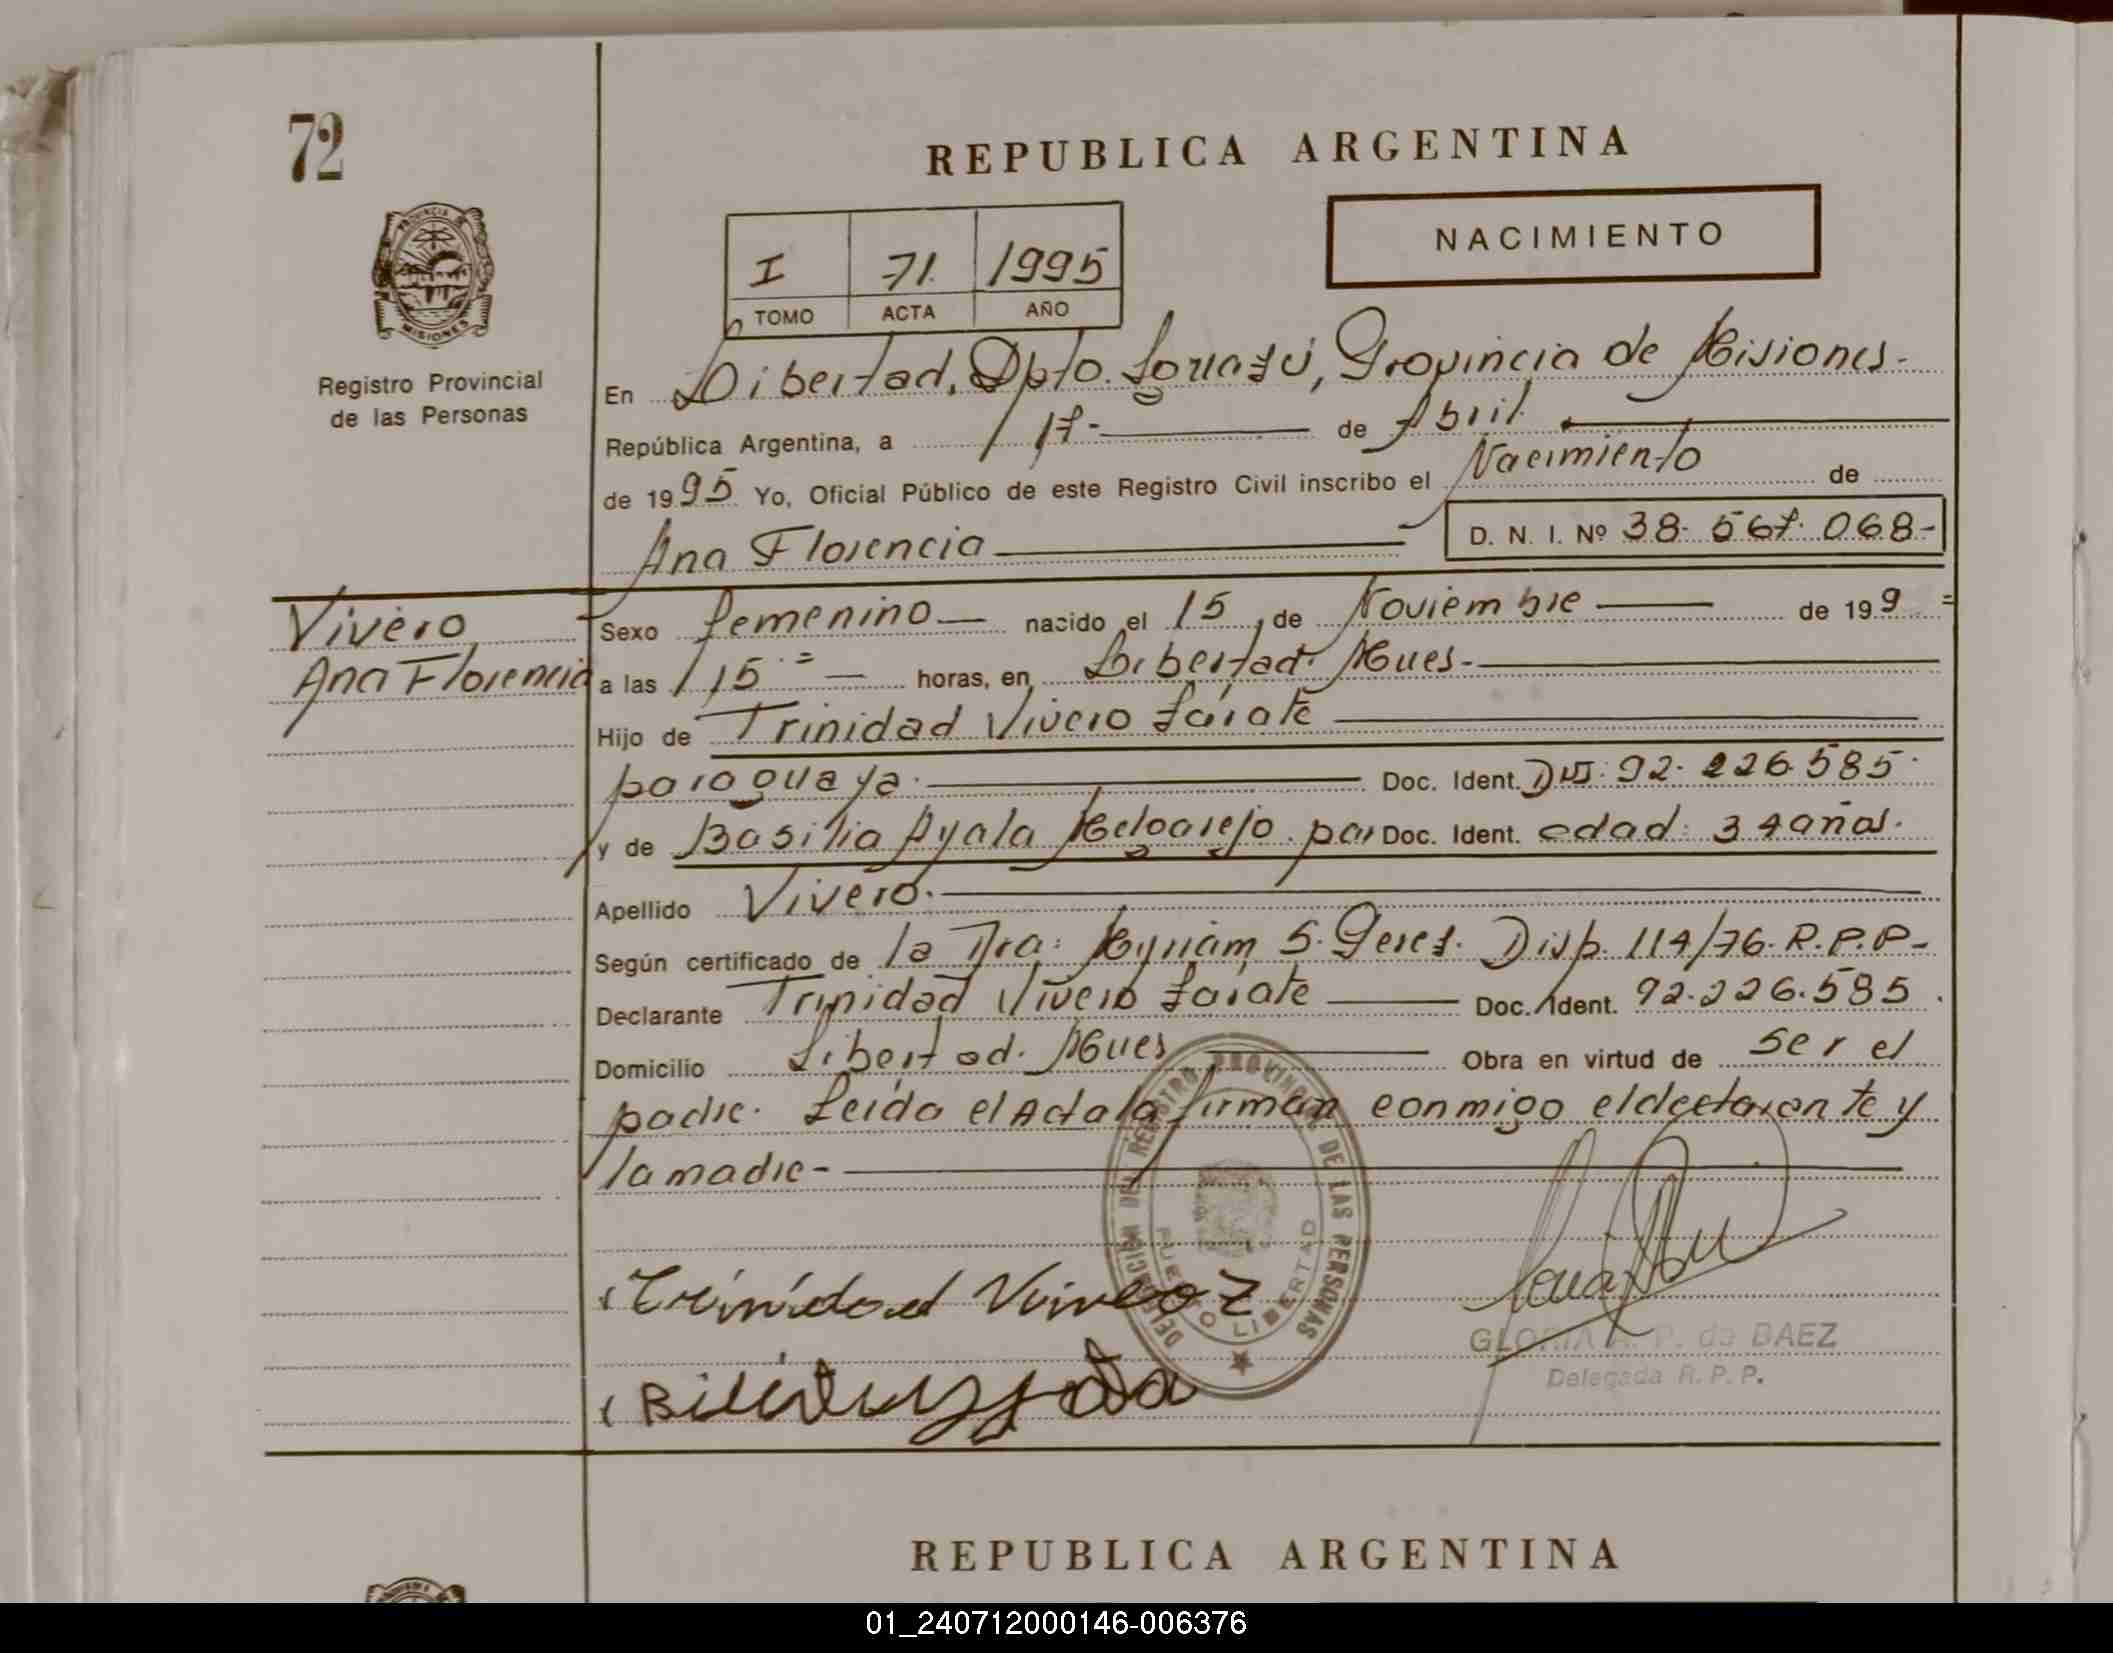 72
REPUBLICA ARGENTINA
PROVINCIA DE MISIONES
Registro Provincial
de las Personas
I 71. 1995
TOMO ACTA AÑO
NACIMIENTO
En Libertad, Dpto. Iguazú, Provincia de Misiones-
República Argentina, a 17- de Abril
de 1995 Yo, Oficial Público de este Registro Civil inscribo el Nacimiento de
Ana Florencia D. N. I. Nº 38-567.068-
Vivero
Ana Florencia
Sexo femenino nacido el 15 de Noviembre de 199
a las 15 horas, en Libertad. Mnes-
Hijo de Trinidad Vivero Zárate
paraguaya. Doc. Ident. DNI: 92.226.585
y de Basilia Ayala Melgarejo. par Doc. Ident. edad: 34 años.
Apellido Vivero.
Según certificado de la Dra: Myriam S. Perez. Disp. 114/76. R.P.P-
Declarante Trinidad Vivero Zárate Doc. Ident. 92.226.585.
Domicilio Libertad. Mnes Obra en virtud de ser el
padre. Leída el Acta la firman conmigo el declarante y
la madre-
DELEGACION DEL REGISTRO PROVINCIAL DE LAS PERSONAS
PUERTO LIBERTAD
Trinidad Vivero Z
GLORIA P. de BAEZ
Delegada R. P. P.
REPUBLICA ARGENTINA
01_240712000146-006376